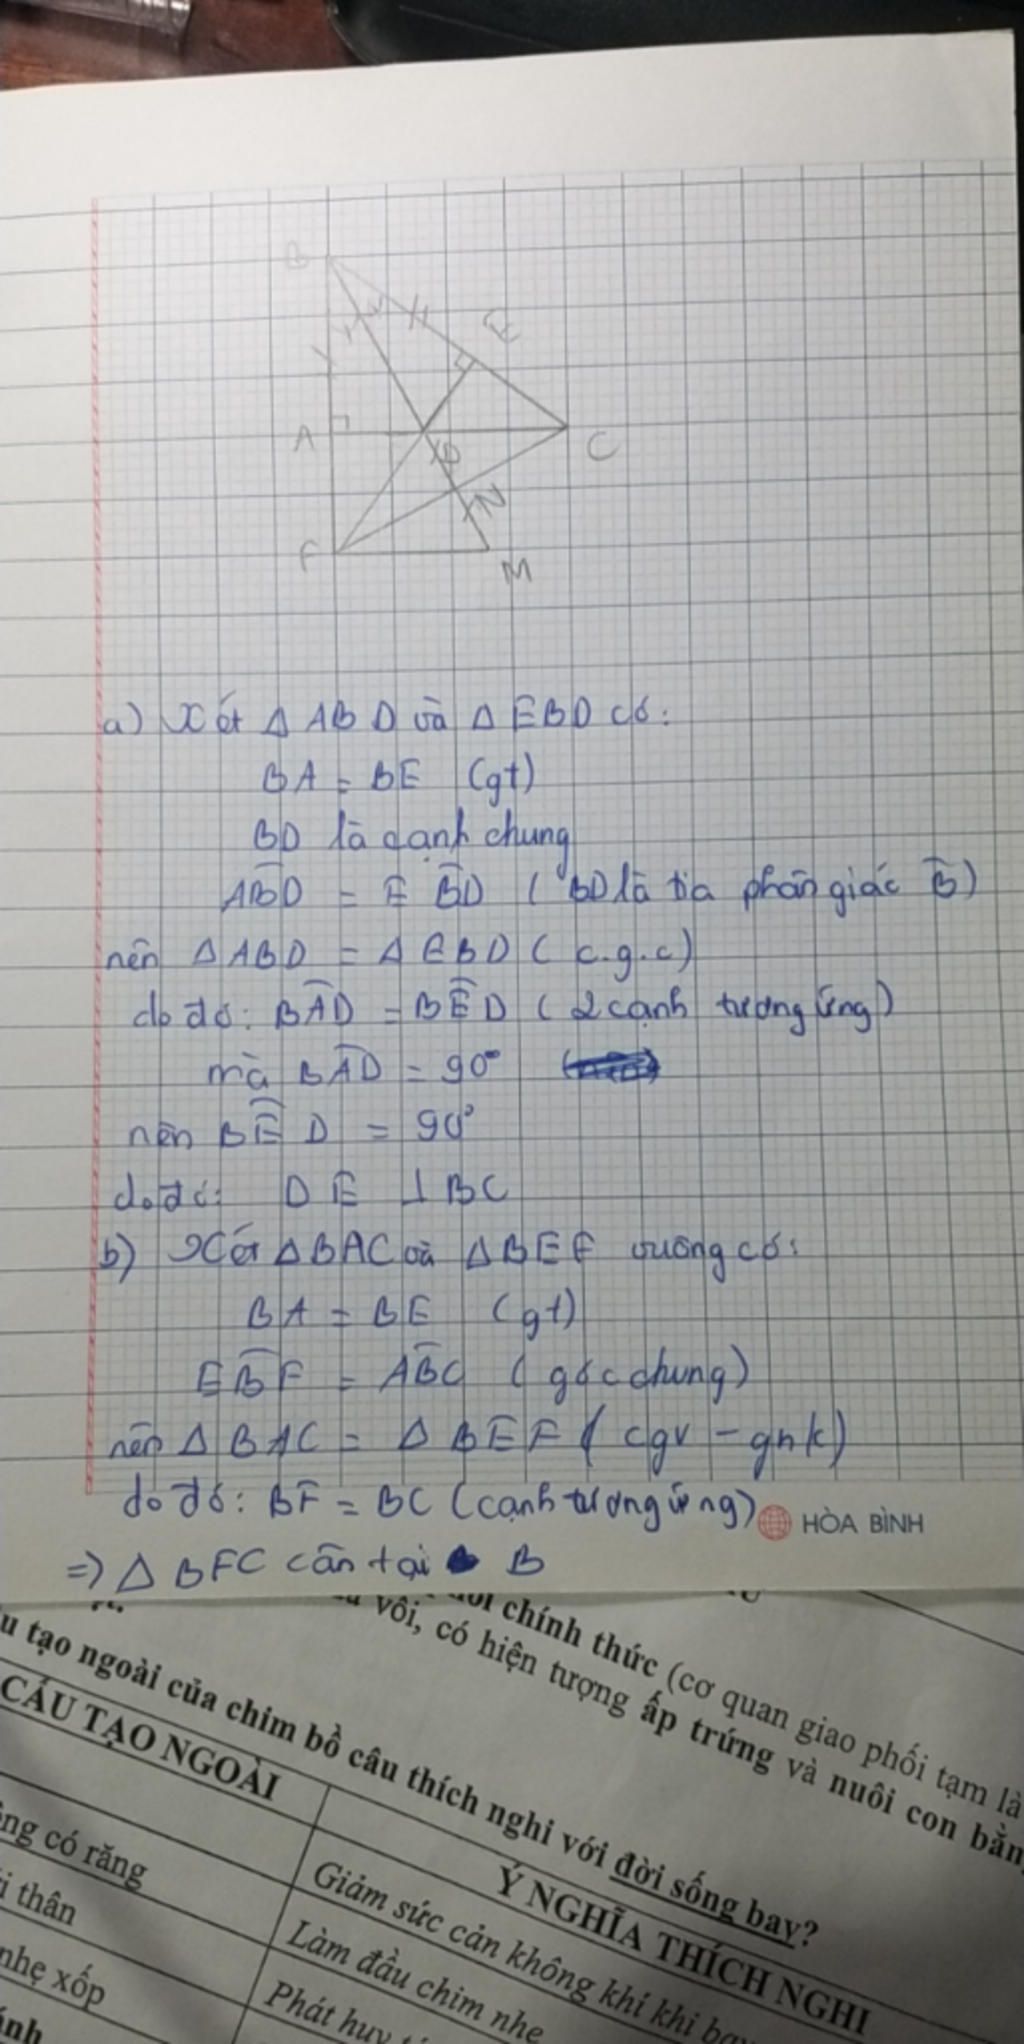 B
E
A
D
C
N
F
M
a) Xét Δ ABD và Δ EBD có:
BA = BE (gt)
BD là cạnh chung
ABD = EBD (BD là tia phân giác B)
nên Δ ABD = Δ EBD (c.g.c)
do đó: BAD = BED (2 cạnh tương ứng)
mà BAD = 90°
nên BED = 90°
do đó: DE ⊥ BC
b) Xét Δ BAC và Δ BEF vuông có:
BA = BE (gt)
EBF = ABC (góc chung)
nên Δ BAC = Δ BEF (cgv - gnk)
do đó: BF = BC (cạnh tương ứng)
HÒA BÌNH
=> Δ BFC cân tại B
chính thức (cơ quan giao phối tạm là
vôi, có hiện tượng ấp trứng và nuôi con bằn
u tạo ngoài của chim bồ câu thích nghi với đời sống bay?
CẤU TẠO NGOÀI
Ý NGHĨA THÍCH NGHI
ng có răng
Giảm sức cản không khí khi bay
i thân
Làm đầu chim nhẹ
nhẹ xốp
Phát huy
ánh